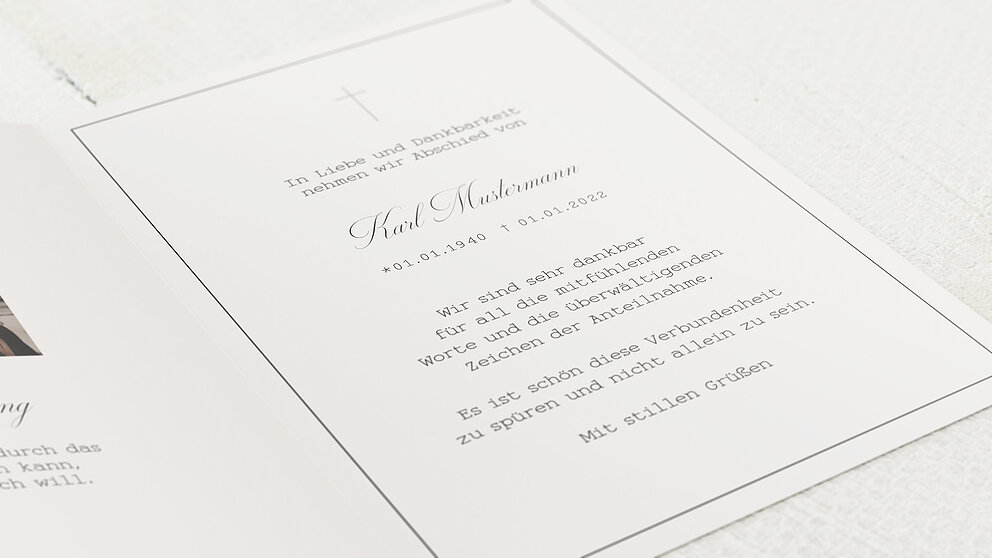 In Liebe und Dankbarkeit
nehmen wir Abschied von
Karl Mustermann
*01.01.1940 † 01.01.2022
Wir sind sehr dankbar
für all die mitfühlenden
Worte und die überwältigenden
Zeichen der Anteilnahme.
Es ist schön diese Verbundenheit
zu spüren und nicht allein zu sein.
Mit stillen Grüßen
ng
durch das
kann,
ch will.